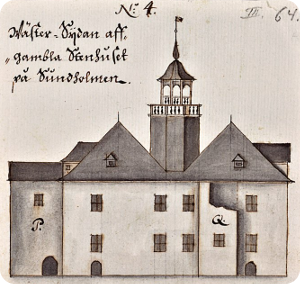 No: 4.
III. 64.
Wäster-Sijdan aff
gambla Stenhuset
på Sundholmen.
P. Q.